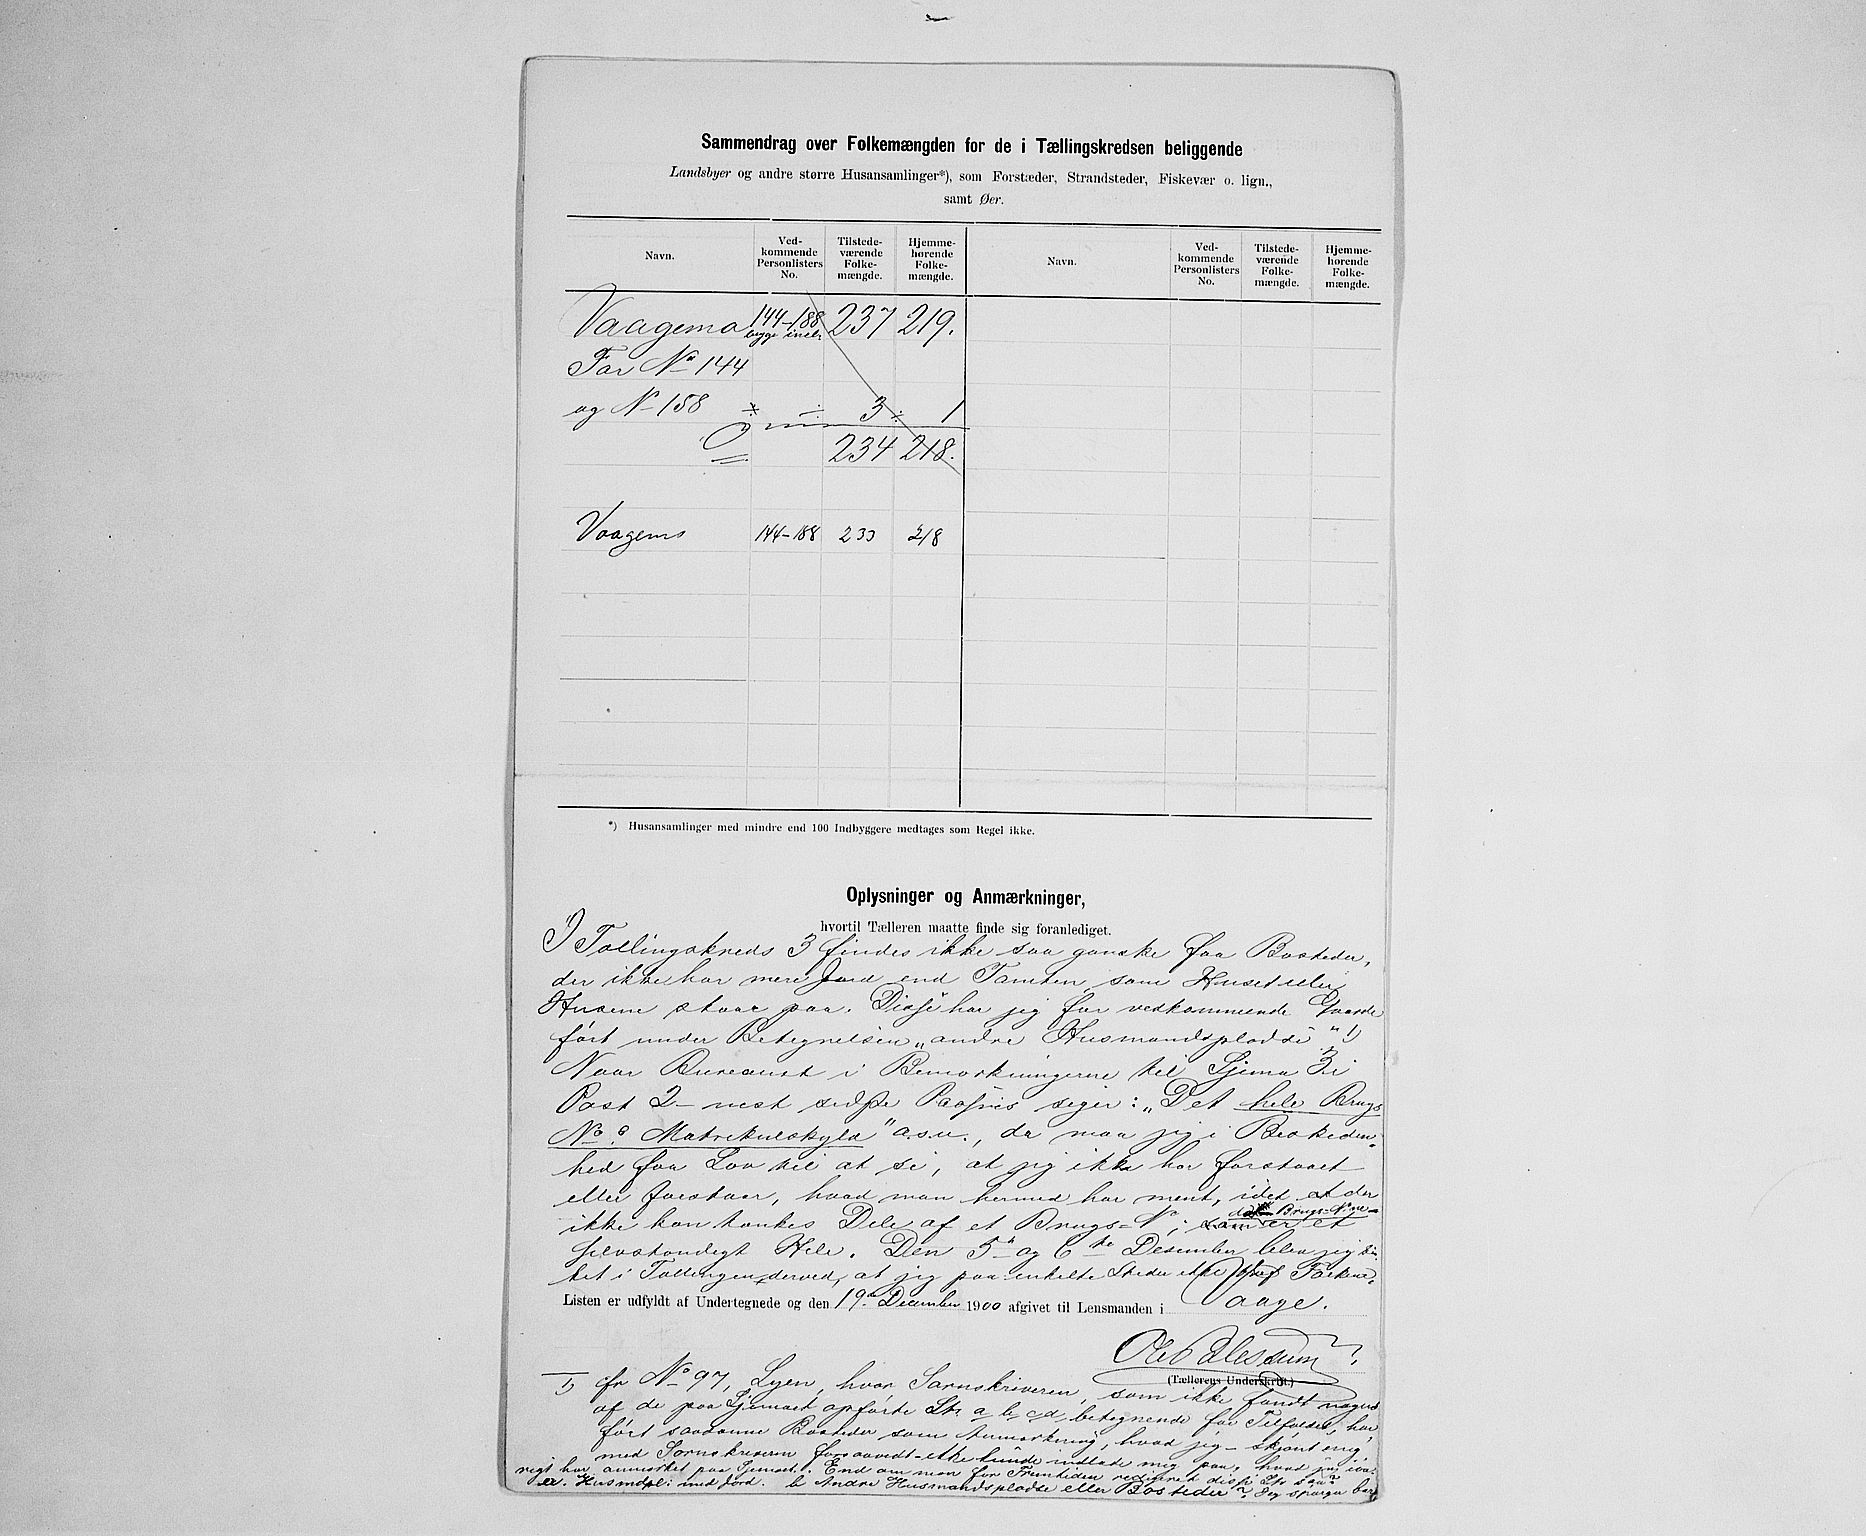 Sammendrag over Folkemængden for de i Tællingskredsen beliggende
Landsbyer og andre større Husansamlinger*), som Forstæder, Strandsteder, Fiskevær o. lign.,
samt Øer.
Navn.
Ved-
kommende
Personlisters
No.
Tilstede-
værende
Folke-
mængde.
Hjemme-
hørende
Folke-
mængde.
Navn.
Ved-
kommende
Personlisters
No.
Tilstede-
værende
Folke-
mængde.
Hjemme-
hørende
Folke-
mængde.
Vaagemo 144-188 237 219.
begge incl.
For No 144
og No 158 ÷ ÷ 3 ÷ 1
234 218.
Vaagemo 144-188 233 218
*) Husansamlinger med mindre end 100 Indbyggere medtages som Regel ikke.
Oplysninger og Anmærkninger,
hvortil Tælleren maatte finde sig foranlediget.
I Tællingskreds 3 findes ikke saa ganske faa Bosteder,
der ikke har mere Jord end Tomten, som Huset eller
Husene staar paa. Disse har jeg for vedkommende Gaarde
ført under Betegnelsen „andre Husmandspladse" 1)
Naar Bureauet i Bemærkningerne til Skjema 3 i
Post 2 næst sidste Passus siger: „Det hele Brugs
No s Matrikulskyld" o.s.v., da maa jeg i Beskeden-
hed faa Lov til at si, at jeg ikke har forstaaet
eller forstaar, hvad man hermed har ment, idet at der
ikke kan tænkes Dele af et Brugs-No; er et
Brugs-No
selvstændigt Hele. Den 5te og 6te Desember blev jeg
ket i Tællingen derved, at jeg paa enkelte Steder ikke traf Folkene.
Listen er udfyldt af Undertegnede og den 19de December 1900 afgivet til Lensmanden i Vaage.
(Tællerens Underskrift.)
1) fr No 97, hvor Sorenskriveren, som ikke fandt nogen
af de paa Skjemaet opførte Ltr. a b c d betegnende for Tilfældet, har
ført saadanne Bosteder som Anmærkning, hvad jeg - skjønt enig
med Sorenskriveren forsaavidt - ikke kunde indlade mig paa, hvad jeg
har anmærket paa Skjemaet. End om man for Fremtiden redigeret disse Ltr. saa?
a. Husmdpl: med Jord. b Andre Husmandspladse eller Bosteder? Jeg spørger bare